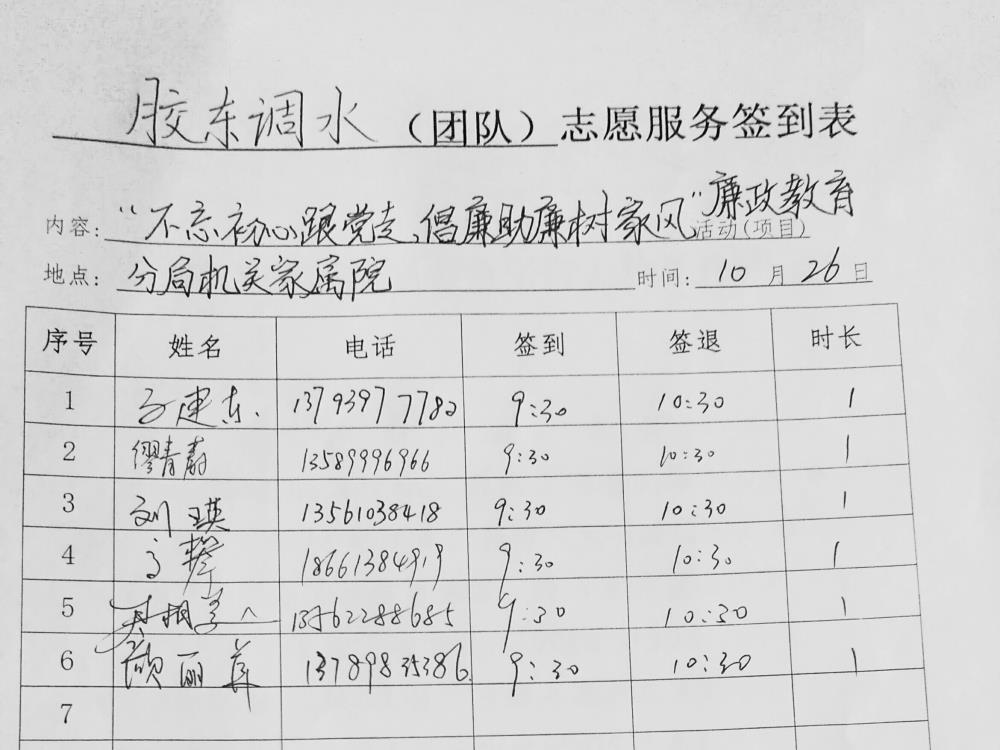 胶东调水（团队）志愿服务签到表
内容："不忘初心跟党走、倡廉助廉树家风"廉政教育活动(项目)
地点：分局机关家属院 时间：10月26日
序号 姓名 电话 签到 签退 时长
1 建东 13793977782 9:30 10:30 1
2 缪青蔚 13589996966 9:30 10:30 1
3 刘瑛 13561038418 9:30 10:30 1
4 18661384919 9:30 10:30 1
5 13562288685 9:30 10:30 1
6 颜丽萍 13789835386 9:30 10:30 1
7